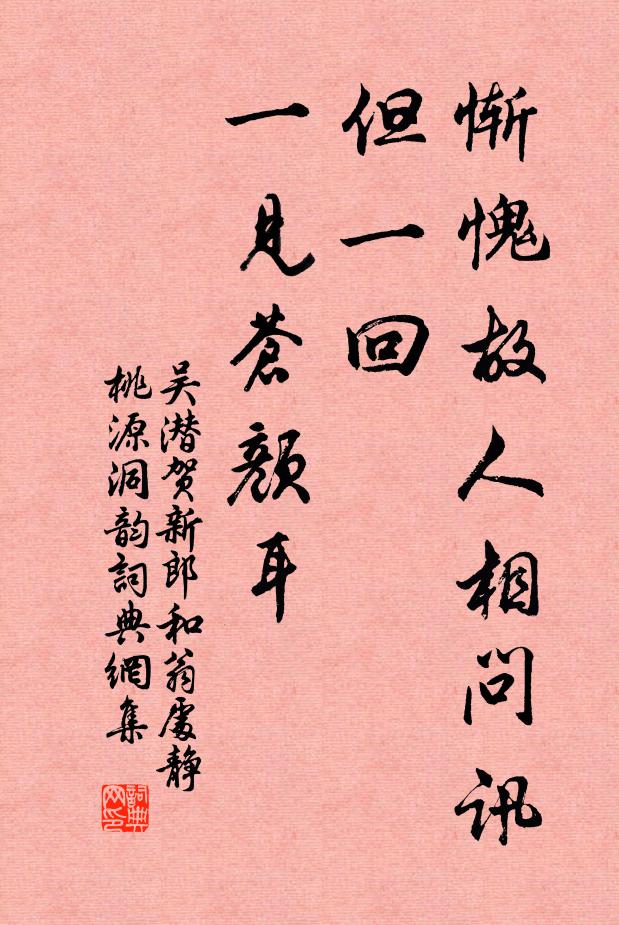 惭愧故人相问讯
但一回
一见苍颜耳
吴潜贺新郎和翁处静
桃源洞韵詞典網集
詞典
网印